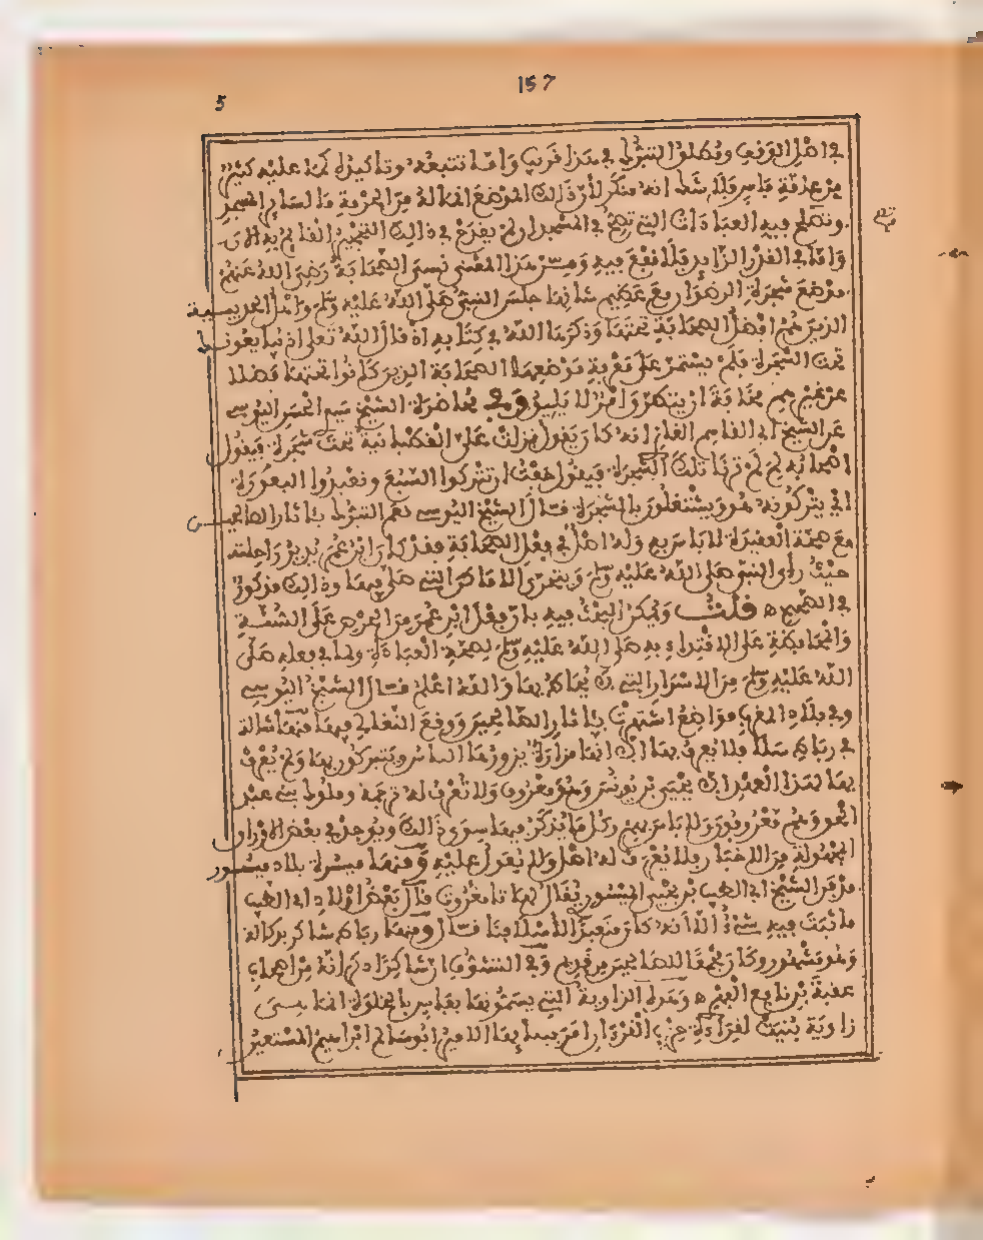 157
5
في اهل الوقف وفعلوا التبرك في هذا قريب واما تتبعه وتاكيده كما عليه كثير
من عامة فاس فلا شك انه منكر لأن ذالك الموضع انما له من الحرمة ما لسائر المسجد
وتصلح فيه العبادات التي تصح في المسجد ولم يقع في ذالك
واما في القدر الزايد فلا نفع فيه ومن هذا المعنى نسي الصحابة رضي الله عنهم
موضع شجرة الرضوان مع عظيم شانها جلس النبي صلى الله عليه وسلم واهل الحديبية
الذين هم افضل الصحابة تحتها وذكرها الله في كتابه اذ قال الله تعلى اذ يبايعونك
تحت الشجرة فلم يستمر على معرفة موضعها الصحابة الذين كانوا تحتها فضلا
عن غيرهم مخافة ان ينكر وامثال وفي محاضرة الشيخ سيدي الحسن اليوسي
عن الشيخ ابي القاسم الغازي انه كان يقول نزلت علي القطبانية تحت شجرة فيقول
اصحابه لم لم ترنا تلك الشجرة فيقول خفت ان تتركوا السبع وتعبدوا البعورة
اي يتركونه هو ويشتغلون بالشجرة قال الشيخ اليوسي نعم التبرك بـاثار الصالحين
مع صحة العقيدة لا باس به وله اصل في فعل الصحابة فقد كان ابن عمر يدير راحلته
حيث رأى النبي صلى الله عليه وسلم ويتحرى الاماكن التي صلى فيها وذالك مذكور
في الصحيح ه قلت ويمكن البحث فيه بان فعل ابن عمر من الحرص على السنة
والمحافظة على الاقتداء به صلى الله عليه وسلم لصحة العبادة ولما في فعله صلى
الله عليه وسلم من الاسرار التي لا يحاط بها والله اعلم قال الشيخ اليوسي
وفي بلاد المغرب مواضع اشتهرت بـاثار الصالحين ووقع التغالي فيها فمنها شالة
في رباط سلا فلا يعرف بها الا انها مزارة يزورها الناس ويتبركون بها ولم يعرف
بها لهذا العهد الا يحيى بن يونس وهو معروف ولا تعرف له ترجمة وملوك بني عبد
الحق وهم معروفون ولا باس بهم وكل ما يذكر فيها سوى ذالك ويوجد في بعض الاوراق
المجهولة من الاخبار فلا يعرف له اصل ولا يعول عليه ومنها ميسرة بلاد ميسور
من قبر الشيخ ابي الطيب بن يحيى الميسوري يقال لها تامغروت قال بعض اولاد ابي الطيب
ما ثبت فيه شيء الا انه كان متعبدا لأسلافنا قال ومنها رباط شاكر بركالة
وهو مشهور وكان مجمعا للصالحين من قديم وفي التشوف ان شاكرا ذكر انه من اصحاب
عقبة بن نافع الفهري ه وهذه الزاوية التي يسمونها بفاس بالخلوة انما هي
زاوية بنيت لقراءة حزب القرءان امر ببنايها الامير ابو سالم ابراهيم المستعين